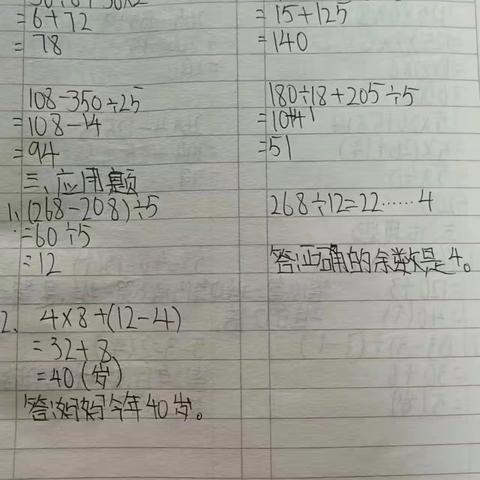 =6+72
=15+125
=78
=140
108-350÷25
180÷18+205÷5
=108-14
=10+41
=94
=51
三、应用题
1、(268-208)÷5
268÷12=22……4
=60÷5
=12
答:正确的余数是4。
2、4×8+(12-4)
=32+8
=40(岁)
答:妈妈今年40岁。